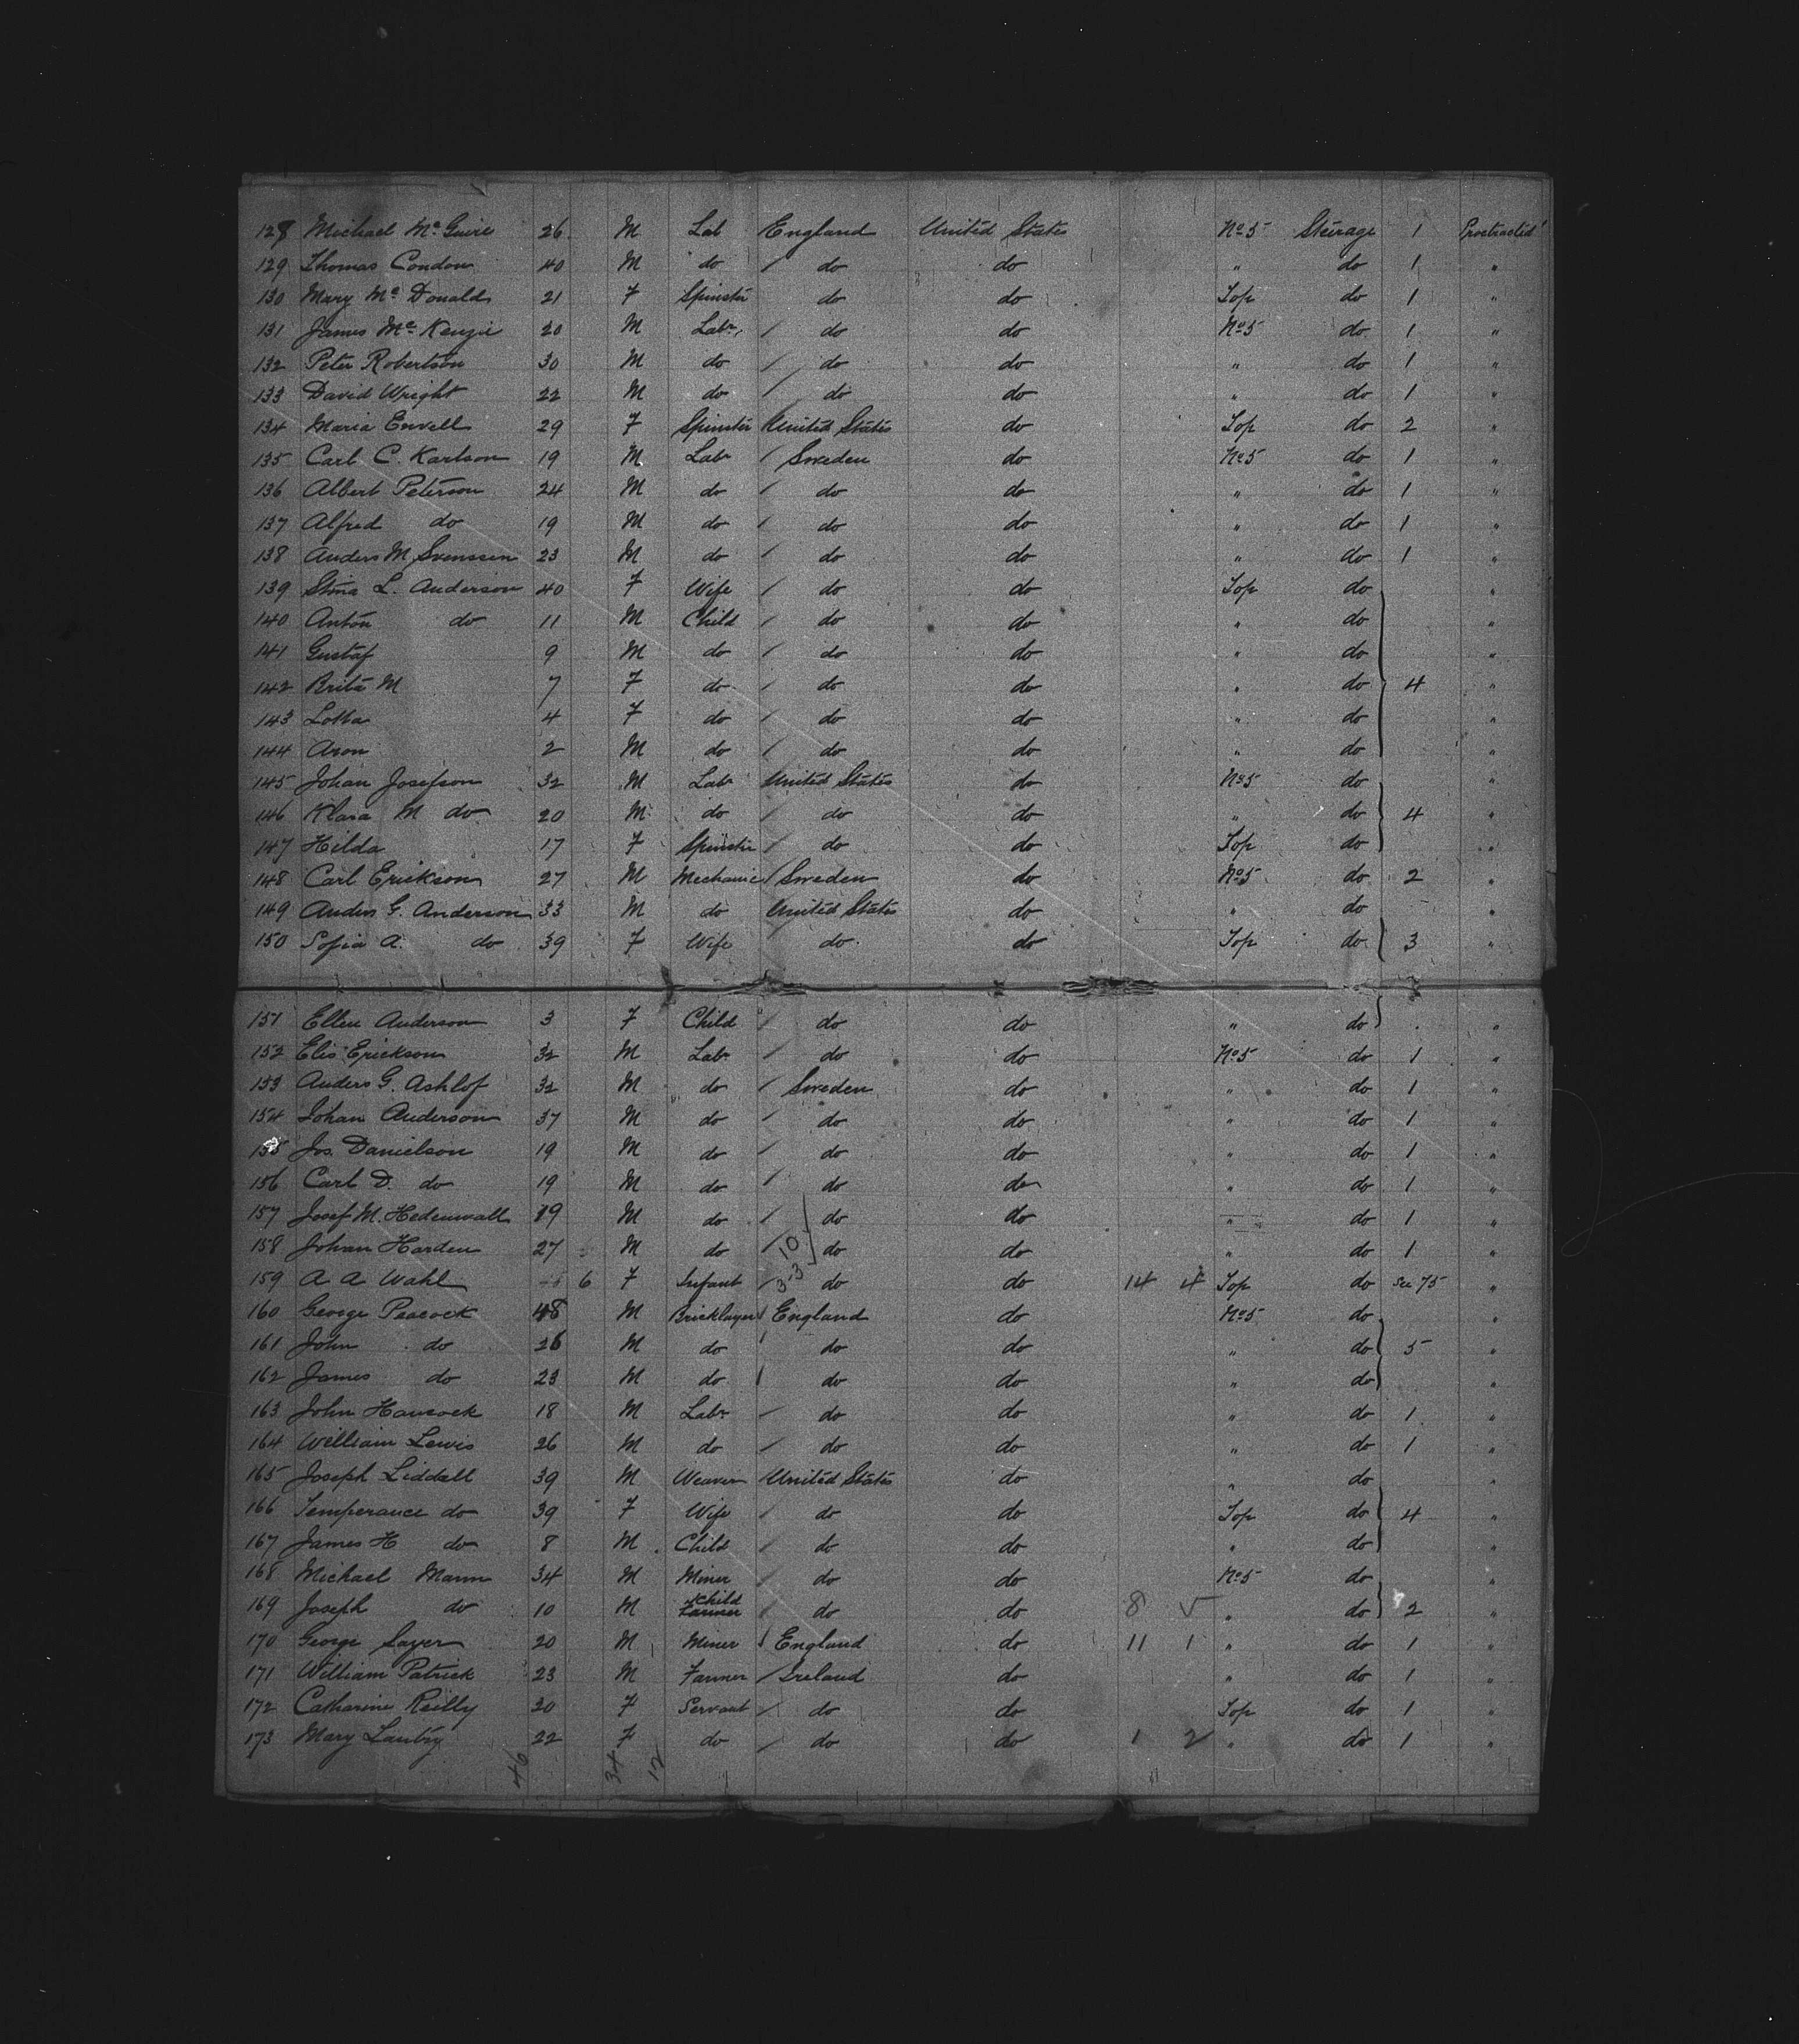 128 Michael Mc Guire 26 M Lab England United States No 5 Steirage 1 Protracted
129 Thomas Condon 40 M do do do " do 1 "
130 Mary Mc Donald 21 F Spinster do do Top do 1 "
131 James Mc Kenzie 20 M Labr do do No 5 do 1 "
132 Peter Robertson 30 M do do do " do 1 "
133 David Wright 22 M do do do " do 1 "
134 Maria Envell 29 F Spinster United States do Top do 2 "
135 Carl C. Karlson 19 M Labr Sweden do No 5 do 1 "
136 Albert Peterson 24 M do do do " do 1 "
137 Alfred do 19 M do do do " do 1 "
138 Anders M Svenssen 23 M do do do " do 1 "
139 Stina L. Anderson 40 F Wife do do Top do "
140 Anton do 11 M Child do do " do "
141 Gustaf 9 M do do do " do "
142 Brita M 7 F do do do " do 4 "
143 Lotta 4 F do do do " do "
144 Aron 2 M do do do " do "
145 Johan Josefson 32 M Labr United States do No 5 do "
146 Klara M do 20 M do do do " do 4 "
147 Hilda 17 F Spinster do do Top do "
148 Carl Erickson 27 M Mechanic Sweden do No 5 do 2 "
149 Anders G. Anderson 33 M do United States do " do "
150 Sofia A. do 39 F Wife do do Top do 3 "
151 Ellen Anderson 3 F Child do do " do "
152 Elis Erickson 32 M Labr do do No 5 do 1 "
153 Anders G. Ashlof 32 M do Sweden do " do 1 "
154 Johan Anderson 37 M do do do " do 1 "
155 Jos. Danielson 19 M do do do " do 1 "
156 Carl D. do 19 M do do do " do 1 "
157 Josef M. Hedenwall 19 M do do do " do 1 "
158 Johan Harden 27 M do 10 do do " do 1 "
159 A A Wahl 6 F Infant 3-3 do do 14 4 Top do See 75 "
160 George Peacock 48 M Bricklayer England do No 5 do "
161 John do 26 M do do do " do 5 "
162 James do 23 M do do do " do "
163 John Hancock 18 M Labr do do " do 1 "
164 William Lewis 26 M do do do " do 1 "
165 Joseph Liddell 39 M Weaver United States do " do "
166 Temperance do 39 F Wife do do Top do 4 "
167 James H do 8 M Child do do " do "
168 Michael Mann 34 M Miner do do No 5 do "
169 Joseph do 10 M Child Farmer do do 8 " do 2 "
170 George Sayer 20 M Miner England do 11 1 " do 1 "
171 William Patrick 23 M Farmer Ireland do " do 1 "
172 Catharine Reilly 20 F Servant do do Top do 1 "
173 Mary 22 F do do do 1 2 " do 1 "
46 34 12